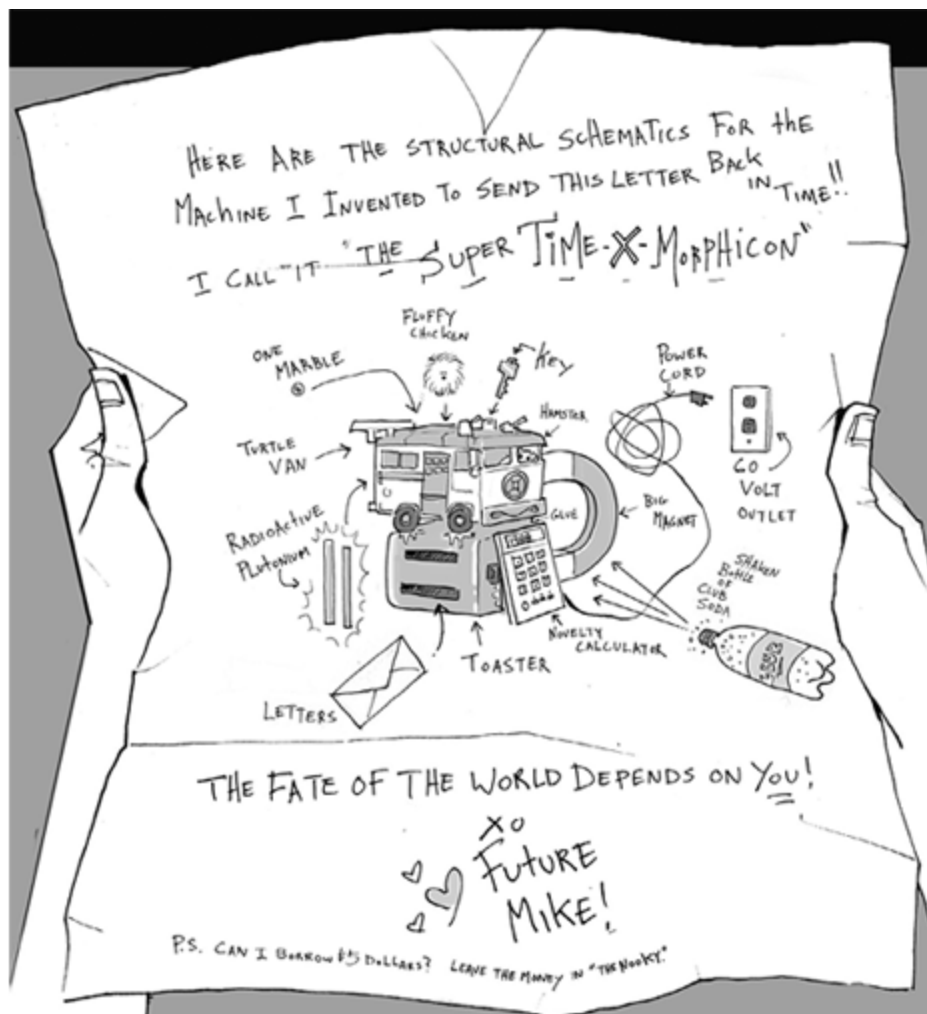 HERE ARE THE STRUCTURAL SCHEMATICS FOR the
MACHINE I INVENTED TO SEND THIS LETTER BACK
IN TIME!!
I CALL IT "THE SUPER TIME-X-MORPHICON"
FLOFFY
CHICKEN
ONE
MARBLE
KEY
POWER
CORD
HAMSTER
TURTLE
VAN
60
VOLT
OUTLET
BIG
MAGNET
GLUE
RADIOACTIVE
PLUTONIUM
SHAKEN
BOTTLE
OF
CLUB
SODA
NOVELTY
CALCULATOR
TOASTER
LETTERS
THE FATE OF THE WORLD DEPENDS ON YOU!
XO
FUTURE
MIKE!
P.S. CAN I BORROW $5 DOLLARS? LEAVE THE MONEY IN "THE NOOKY."